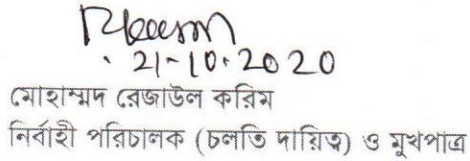 21-10.2020
মোহাম্মদ রেজাউল করিম
নির্বাহী পরিচালক (চলতি দায়িত্ব) ও মুখপাত্র